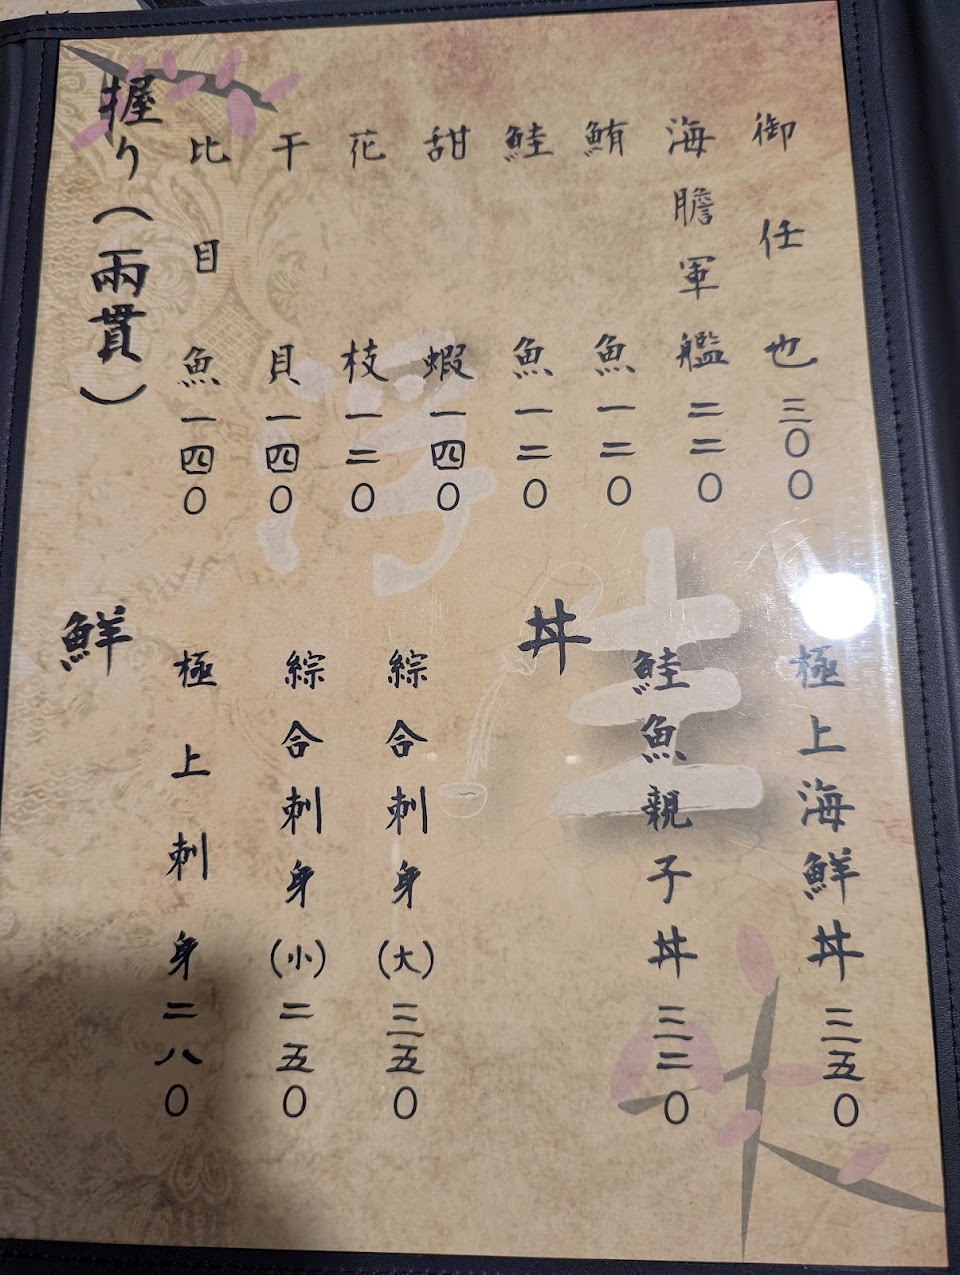 握り(兩貫)
比目魚一四〇
干貝一四〇
花枝一二〇
甜蝦一四〇
鮭魚一二〇
鮪魚一二〇
海膽軍艦二二〇
御任也三〇〇
鮮
極上刺身二八〇
綜合刺身(小)二五〇
綜合刺身(大)三五〇
丼
鮭魚親子丼三二〇
極上海鮮丼三五〇